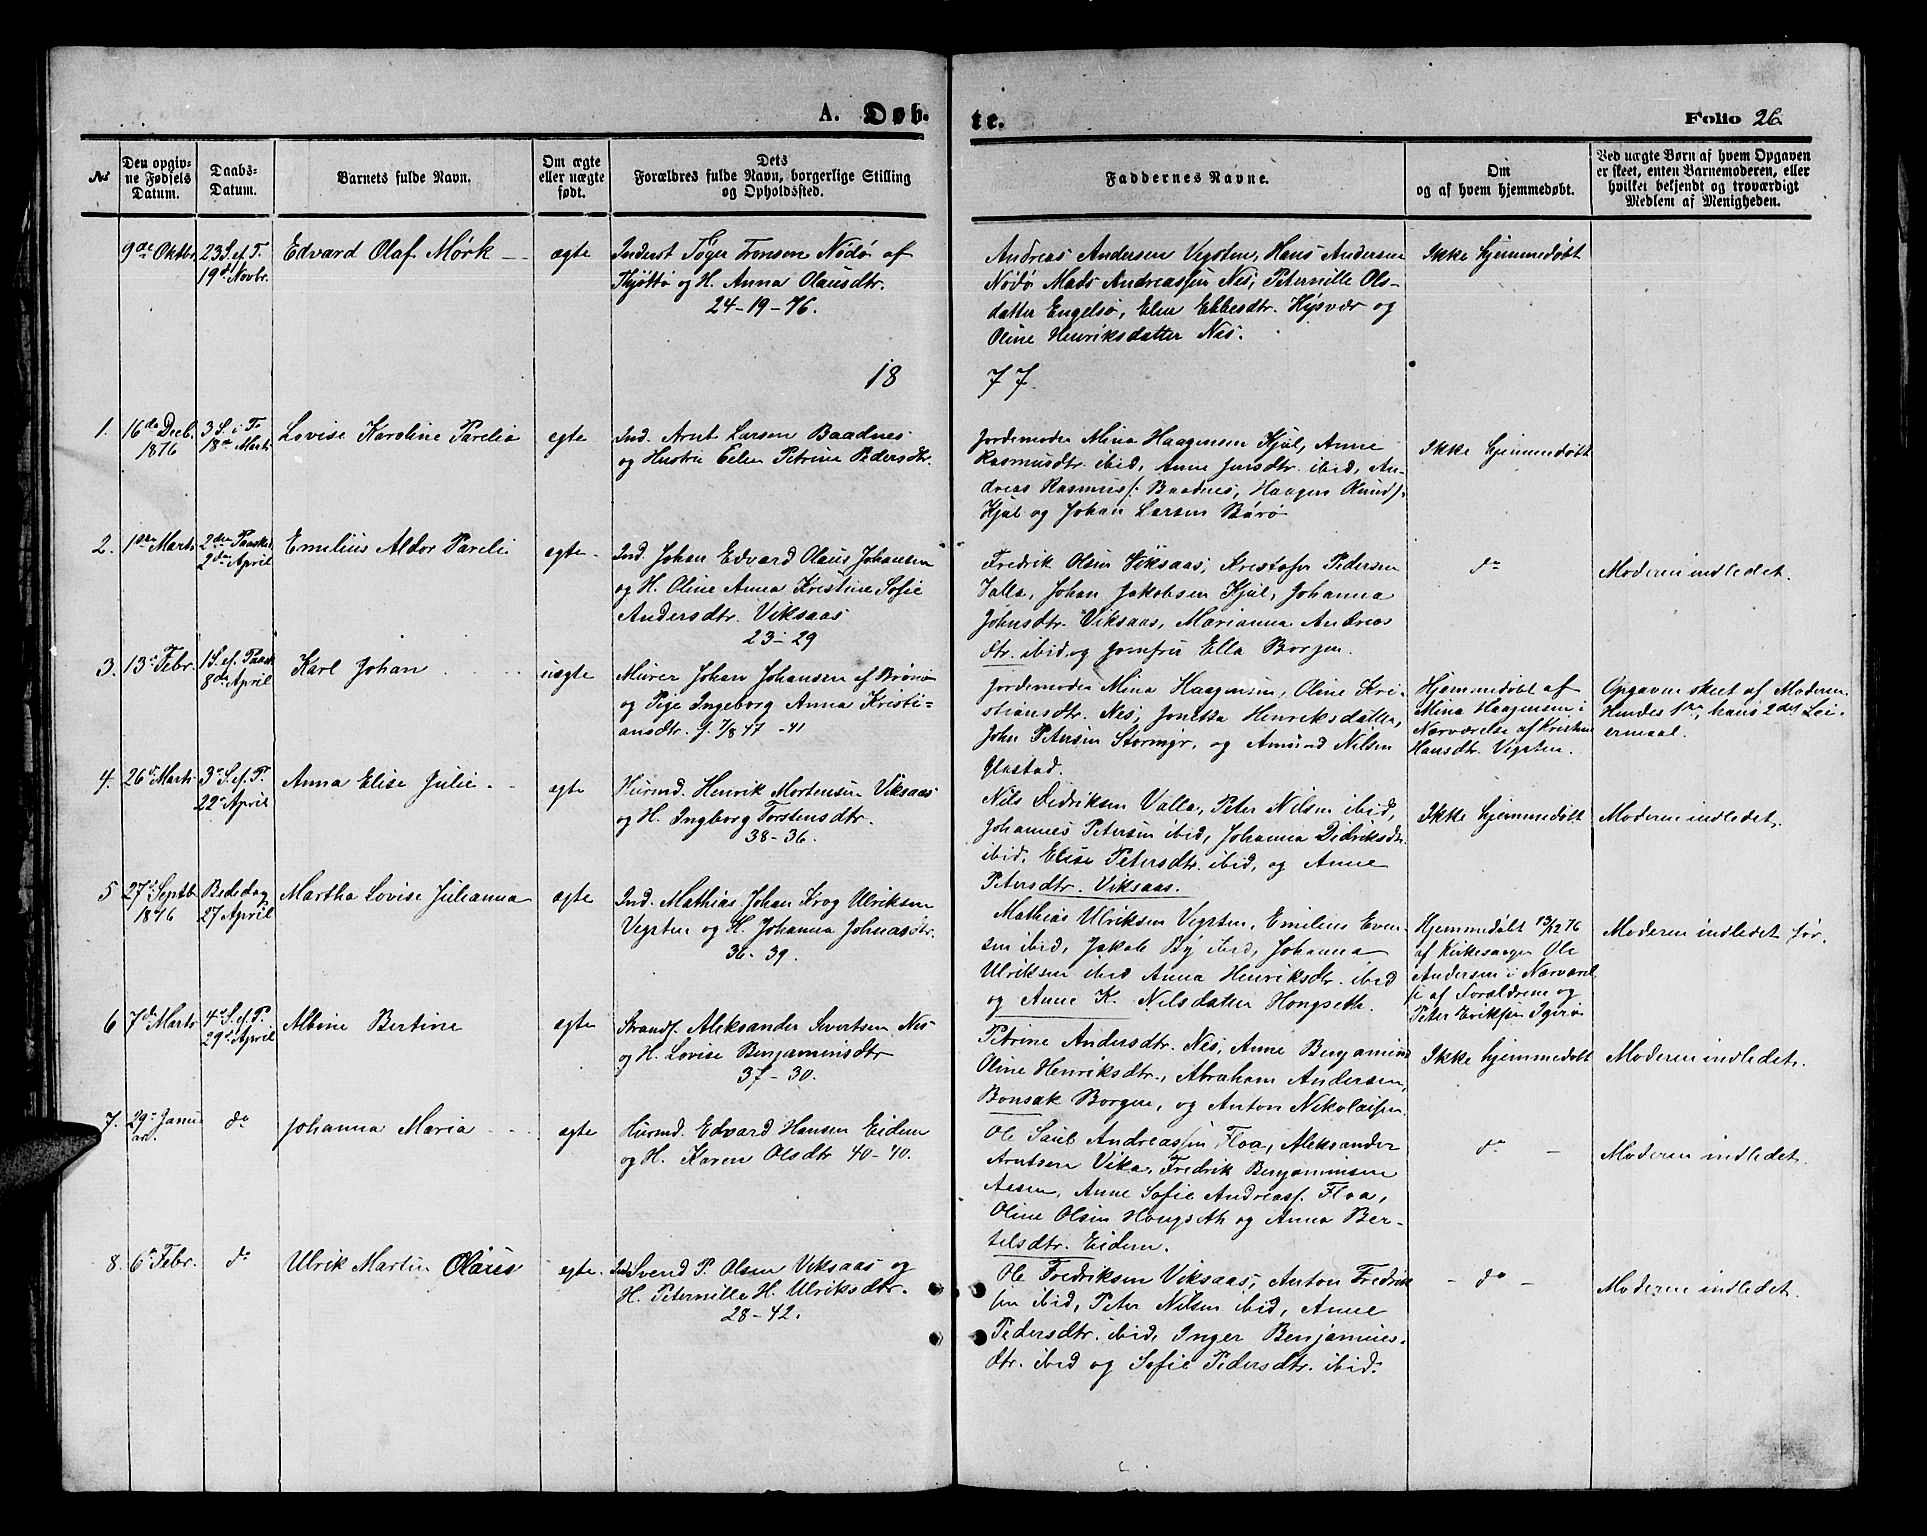 A. Døb-
te.
Folio 26.
No
Den opgiv-
ne Fødsels
Datum.
Daabs-
Datum.
Barnets fulde Navn.
Om ægte
eller uægte
født.
Dets
Forældres fulde Navn, borgerlige Stilling
og Opholdssted.
Faddernes Navne.
Om
og af hvem hjemmedøbt.
Ved uægte Børn af hvem Opgaven
er skeet, enten Barnemoderen, eller
hvilket bekjendt og troværdigt
Medlem af Menigheden.
9de Oktbr.
23 S. ef. T.
19de Novbr.
Edvard Olaf Mørk
ægte
Inderst Tøger Tronsen Nødø af
Thjøttø og H. Anna Olausdtr.
24-19-76.
Andreas Andersen Vegsten, Hans Andersen
Nødø Mads Andreassen Nes, Peternille Ols-
datter Engelsø, Elen Ebbesdtr. Hysvær og
Oline Henriksdatter Nes.
Ikke hjemmedøbt
18
77.
1.
16de Decb.
1876
3 S. i F.
18de Marts
Lovise Karoline Parelia
egte
Ind. Arnt Larsen Baadnes
og Hustru Elen Petrine Pedersdtr.
Jordemoder Mina Haagensen Kjul, Anne
Rasmusdtr. ibid, Anne Jensdtr. ibid, An-
dreas Rasmuss. Baadnes, Haagen Knuds.
Kjul og Johan Larsen Bårø
Ikke hjemmedøbt
2.
1ste Marts
2den Paaske
2den April
Emilius Aldor Parelis
egte
Ind. Johan Edvard Olaus Johansen
og H. Oline Anna Kristine Sofie
Andersdtr. Viksaas
23-29
Fredrik Olsen Viksaas, Kristofer Pedersen
Valla, Johan Jakobsen Kjul, Johanna
Johnsdtr. Viksaas, Marianna Andreas
dtr. ibid og Jomfru Ella Borgen.
do
Moderen indledet.
3.
13de Febr.
1 S. ef. Paask.
8de April
Karl Johan
uægte
Murer Johan Johansen af Brønø
og Pige Ingeborg Anna Kristi-
ansdtr. f. 7/8 47 -41
Jordemoder Mina Haagensen, Oline Kri-
stiansdtr. Nes, Jonetta Henriksdatter,
John Petersen Stormyr, og Amund Nilsen
Glastad.
Hjemmedøbt af
Mina Haagensen i
Nærværelse af Kristine
Hansdtr. Vegsten.
Opgaven skeet af Moderen
Hendes 1ste, hans 2det Lei-
ermaal.
4.
26de Marts
3de S. ef. P.
22de April
Anna Elise Julie
egte
Huusmd. Henrik Mortensen Viksaas
og H. Ingborg Torstensdtr.
38-36.
Nils Didriksen Valla, Peter Nilsen ibid,
Johannes Petersen ibid, Johanna Didriksdtr.
ibid, Elise Petersdtr. ibid, og Anne
Petersdtr. Viksaas.
Ikke hjemmedøbt
Moderen indledet.
5
27de Septb.
1876
Bededag
27 April
Martha Lovise Julianna
egte
Ind. Mathias Johan Krog Ulriksen
Vegsten og H. Johanna Johnasdtr.
36-39.
Mathias Ulriksen Vegsten, Emilius Even-
sen ibid, Jakob By ibid, Johanna
Ulriksen ibid Anna Henriksdtr. ibid
og Anne K. Nilsdatter Hongseth.
Hjemmedøbt 13/12 76
af Kirkesanger Ole
Andersen i Nærværel-
se af Forældrene og
Peter Eriksen Igerø
Moderen indledet før.
6
7de Marts
4de S. ef. P.
29de April
Albine Bertine
egte
Strands. Aleksander Sivertsen Nes
og H. Lovise Benjaminsdtr
37-30.
Petrine Andersdtr. Nes, Anne Benjamind.
Oline Henriksdtr., Abraham Andersen,
Bonsak Borgen, og Anton Nikolaisen.
Ikke hjemmedøbt
Moderen indledet.
7.
29de Janu-
ar.
do
Johanna Maria
egte
Huusmd. Edvard Hansen Eidem
og H. Karen Olsdtr 40-40.
Ole Saul Andreassen Floa, Aleksander
Arntsen Vika, Fredrik Benjaminsen
Aasen, Anne Sofie Andreass. Floa,
Oline Olsen Hongseth og Anna Ber-
telsdtr. Eidem.
do
Moderen indledet.
8.
6te Febr.
do
Ulrik Martin Olaus
egte.
Ind. Svend P. Olsen Viksaas og
H. Peternille H. Ulriksdtr.
28-42.
Ole Fredriksen Viksaas, Anton Fredrik-
sen ibid, Peter Nilsen ibid, Anne
Pedersdtr. ibid, Inger Benjamins-
dtr. ibid og Sofie Pedersdtr. ibid.
- do -
Moderen indledet.